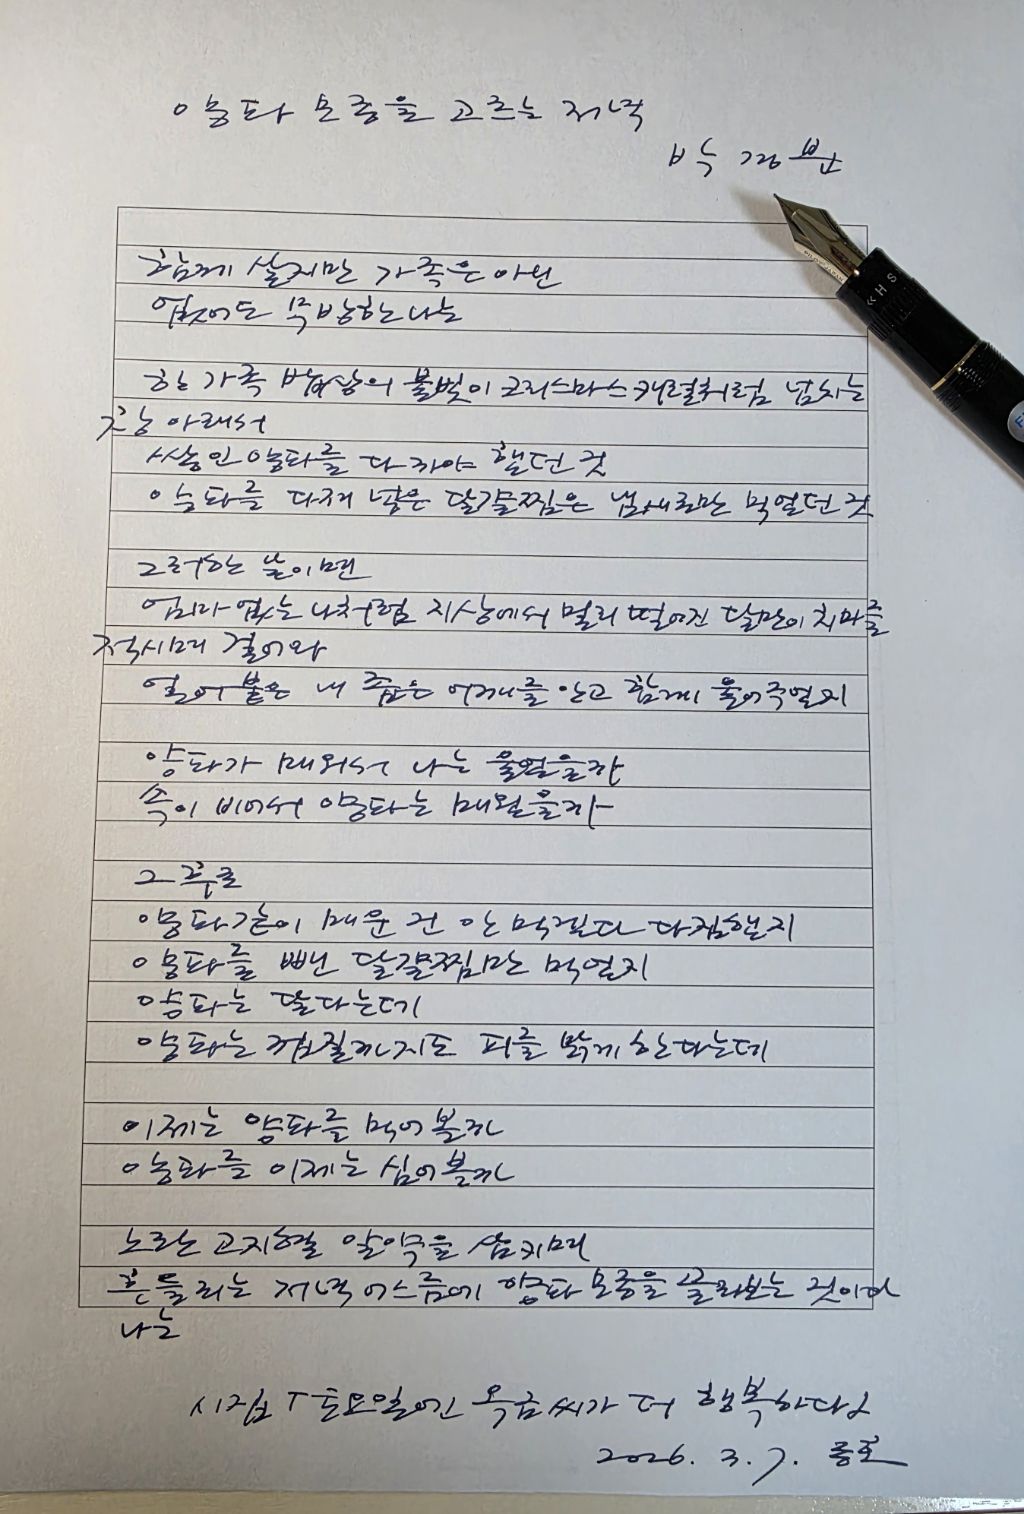 양파 모종을 고르는 저녁
박경분
함께 살지만 가족은 아닌
없어도 무방한 나는
한 가족 밥상의 불빛이 크리스마스 캐럴처럼 넘치는
천장 아래서
쌓인 양파를 다 까야 했던 것
양파를 다져 넣은 달걀찜은 냄새로만 먹었던 것
그러한 날이면
엄마 없는 나처럼 지상에서 멀리 떨어진 달만이 치마를
적시며 걸어와
얼어붙은 내 좁은 어깨를 안고 함께 울어주었지
양파가 매워서 나는 울었을까
속이 비어서 양파는 매웠을까
그 후로
양파같이 매운 건 안 먹겠다 다짐했지
양파를 뺀 달걀찜만 먹었지
양파는 달다는데
양파는 껍질까지도 피를 맑게 한다는데
이제는 양파를 먹어볼까
양파를 이제는 심어볼까
노란 고지혈 알약을 삼키며
흔들리는 저녁 어스름에 양파 모종을 골라보는 것이다
나는
시집 「토요일에는 옥금씨가 더 행복하다」
2026. 3. 7. 종호
«HS